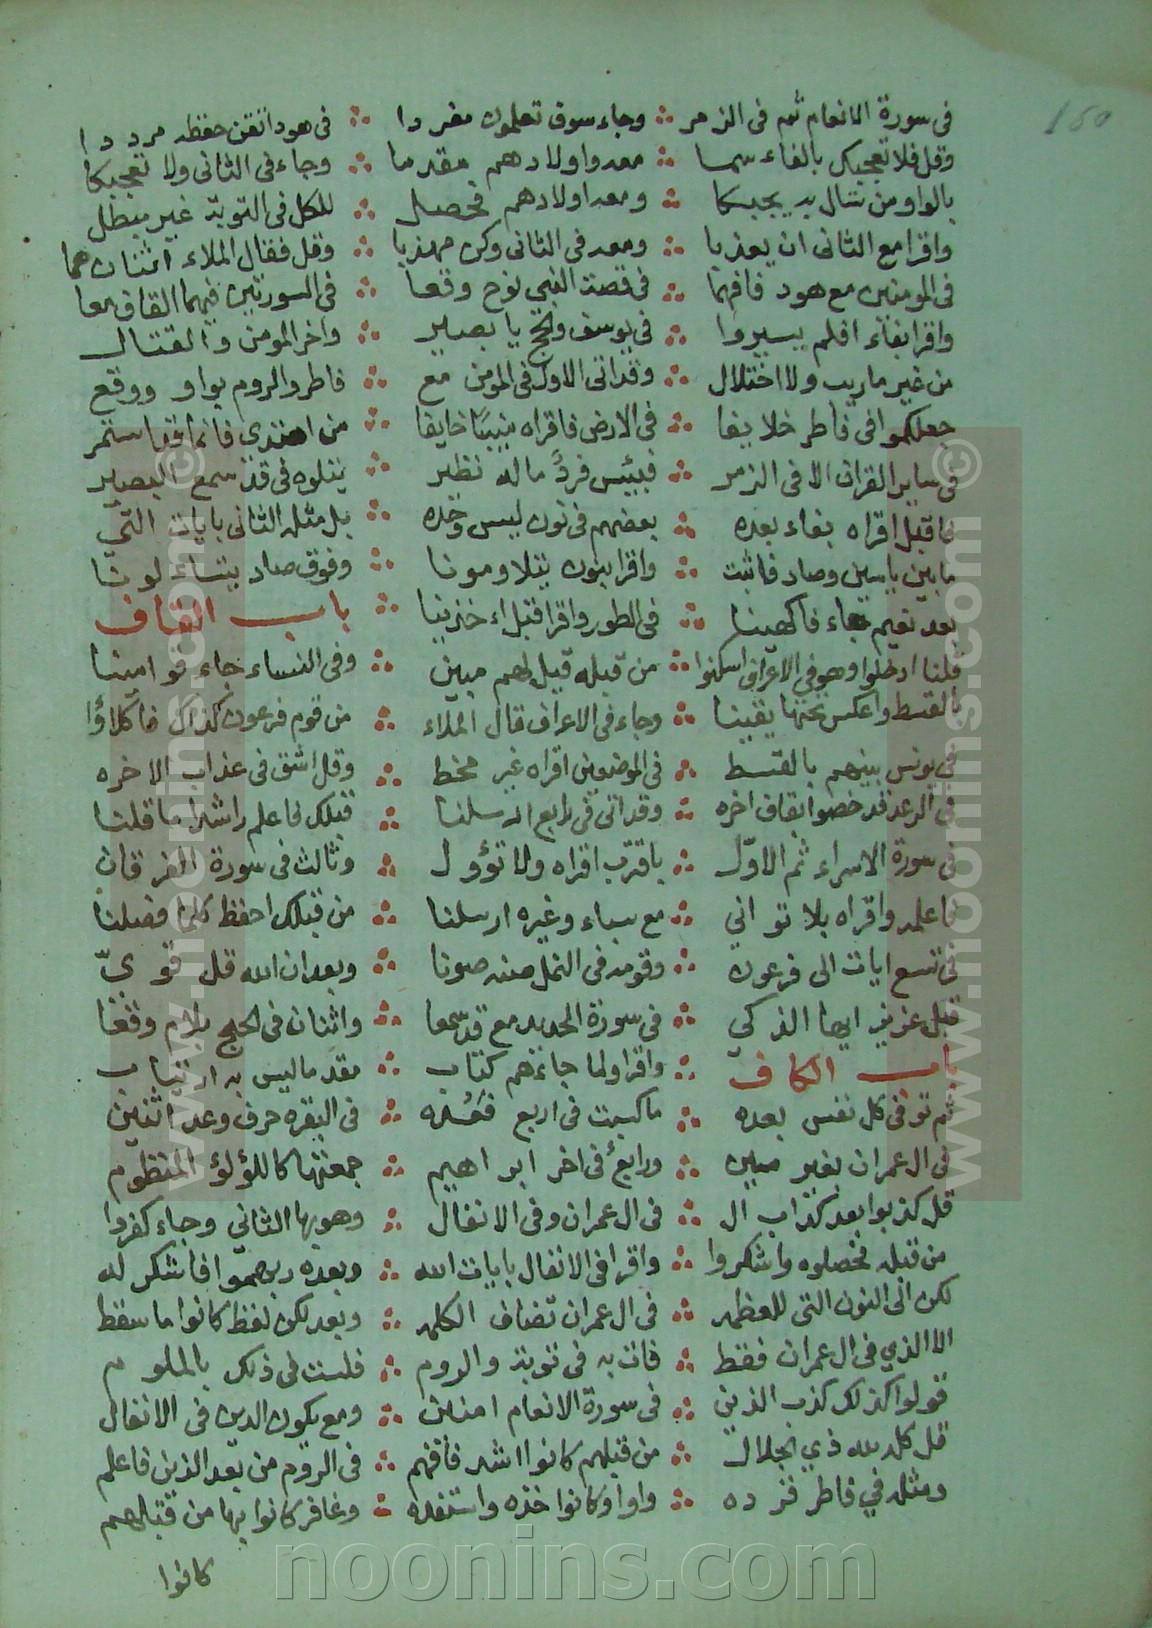 في سورة الانعام ثم في الزمر ∴ وجاء سوف تعلمون مفردا ∴ في هود اتقن حفظه مرددا
وقل فلا تعجبك بالفاء سما ∴ معه واولادهم مقدما ∴ وجاء في الثاني ولا تعجبكا
بالواو من سال به يجبكا ∴ ومعه اولادهم فحصل ∴ للكل في التوبة غير مبطل
واقرا مع الثاني ان يعذبا ∴ ومعه في الثاني وكن مهذبا ∴ وقل فقال الملاء اثنان هما
في المومنين مع هود فافهما ∴ في قصة النبي نوح وقعا ∴ في السورتين فيهما القاف معا
واقرا بفاء افلم يسيروا ∴ في يوسف والحج يا بصير ∴ واخر المومن والقتال
من غير ما ريب ولا اختلال ∴ وقد اتى الاول في المومن مع ∴ فاطر والروم بواو ووقع
جعلكموا في فاطر خلايفا ∴ في الارض فاقراه خايفا ∴ من اهتدى فانما استمر
في ساير القران الا في الزمر ∴ فبيئس فرد ما له نظير ∴ يتلوه في قد سمع البصير
فاقبل اقراه بفاء بعده ∴ بعضهم في نون ليس وحده ∴ بل مثله الثاني بايات التي
ما بين ياسين وصاد فاثبت ∴ واقرا بنون يتلاومونا ∴ وفوق صاد يتساءلونا
بعد نعيم جاء فاكهينا ∴ في الطور واقرا قبل اخذينا ∴ باب القاف
قلنا ادخلوا وهو في الاعراف اسكنوا ∴ من قبله قيل لهم مبين ∴ وفي النساء جاء قوامينا
بالقسط واعكس تحتها يقينا ∴ وجاء في الاعراف قال الملاء ∴ من قوم فرعون كذاك
في يونس بينهم بالقسط ∴ في الموضعين اقراه غير مخط ∴ وقل اشق في عذاب الاخره
في الرعد قد خصوا بقاف اخره ∴ وقد اتى في رابع ارسلنا ∴ قبلك فاعلم راشدا ما قلنا
في سورة الاسراء ثم الاول ∴ باقترب اقراه ولا تؤول ∴ وثالث في سورة الفرقان
فاعلمه واقراه بلا تواني ∴ مع سباء وغيره ارسلنا ∴ من قبلك احفظ كلما فصلنا
في تسع ايات الى فرعون ∴ وقومه في النمل صونا ∴ وبعد ان الله قل قوي
قبل عزيز ايها الذكي ∴ في سورة الحديد مع قد سمعا ∴ واثنان في الحج بلام وقعا
باب الكاف ∴ واقرا ولما جاءهم كتاب ∴ مقدما ليس به ارتياب
ثم توفى كل نفس بعده ∴ ما كسبت في اربع ∴ في البقره حرف وعد اثنين
في ال عمران بغير مين ∴ ورابع في اخر ابراهيم ∴ جمعتها كاللؤلؤ المنظوم
قل كذبوا بعد كذاب ال ∴ في ال عمران وفي الانفال ∴ وهو بها الثاني وجاء كفروا
من قبله فحصلوه واشكروا ∴ واقرا في الانفال بايات الله ∴ وبعده ربهموا فاشكر له
لكن الى النون التي للعظمه ∴ في ال عمران تضاف الكلمه ∴ وبعد لكن لفظ كانوا ما سقط
الا الذي في ال عمران فقط ∴ فات به في توبة والروم ∴ فلست في ذلك بالملوم
قولوا كذلك كذب الذين ∴ في سورة الانعام ∴ ومع يكون الدين في الانفال
قل كله لله ذي الجلال ∴ من قبلهم كانوا اشد فافهم ∴ في الروم من بعد الذين فاعلم
ومثله في فاطر فرده ∴ واوا وكانوا خذه واستفده ∴ وغافر كانوا بها من قبلهم
كانوا
150
www.noonins.com ©
www.noonins.com ©
noonins.com